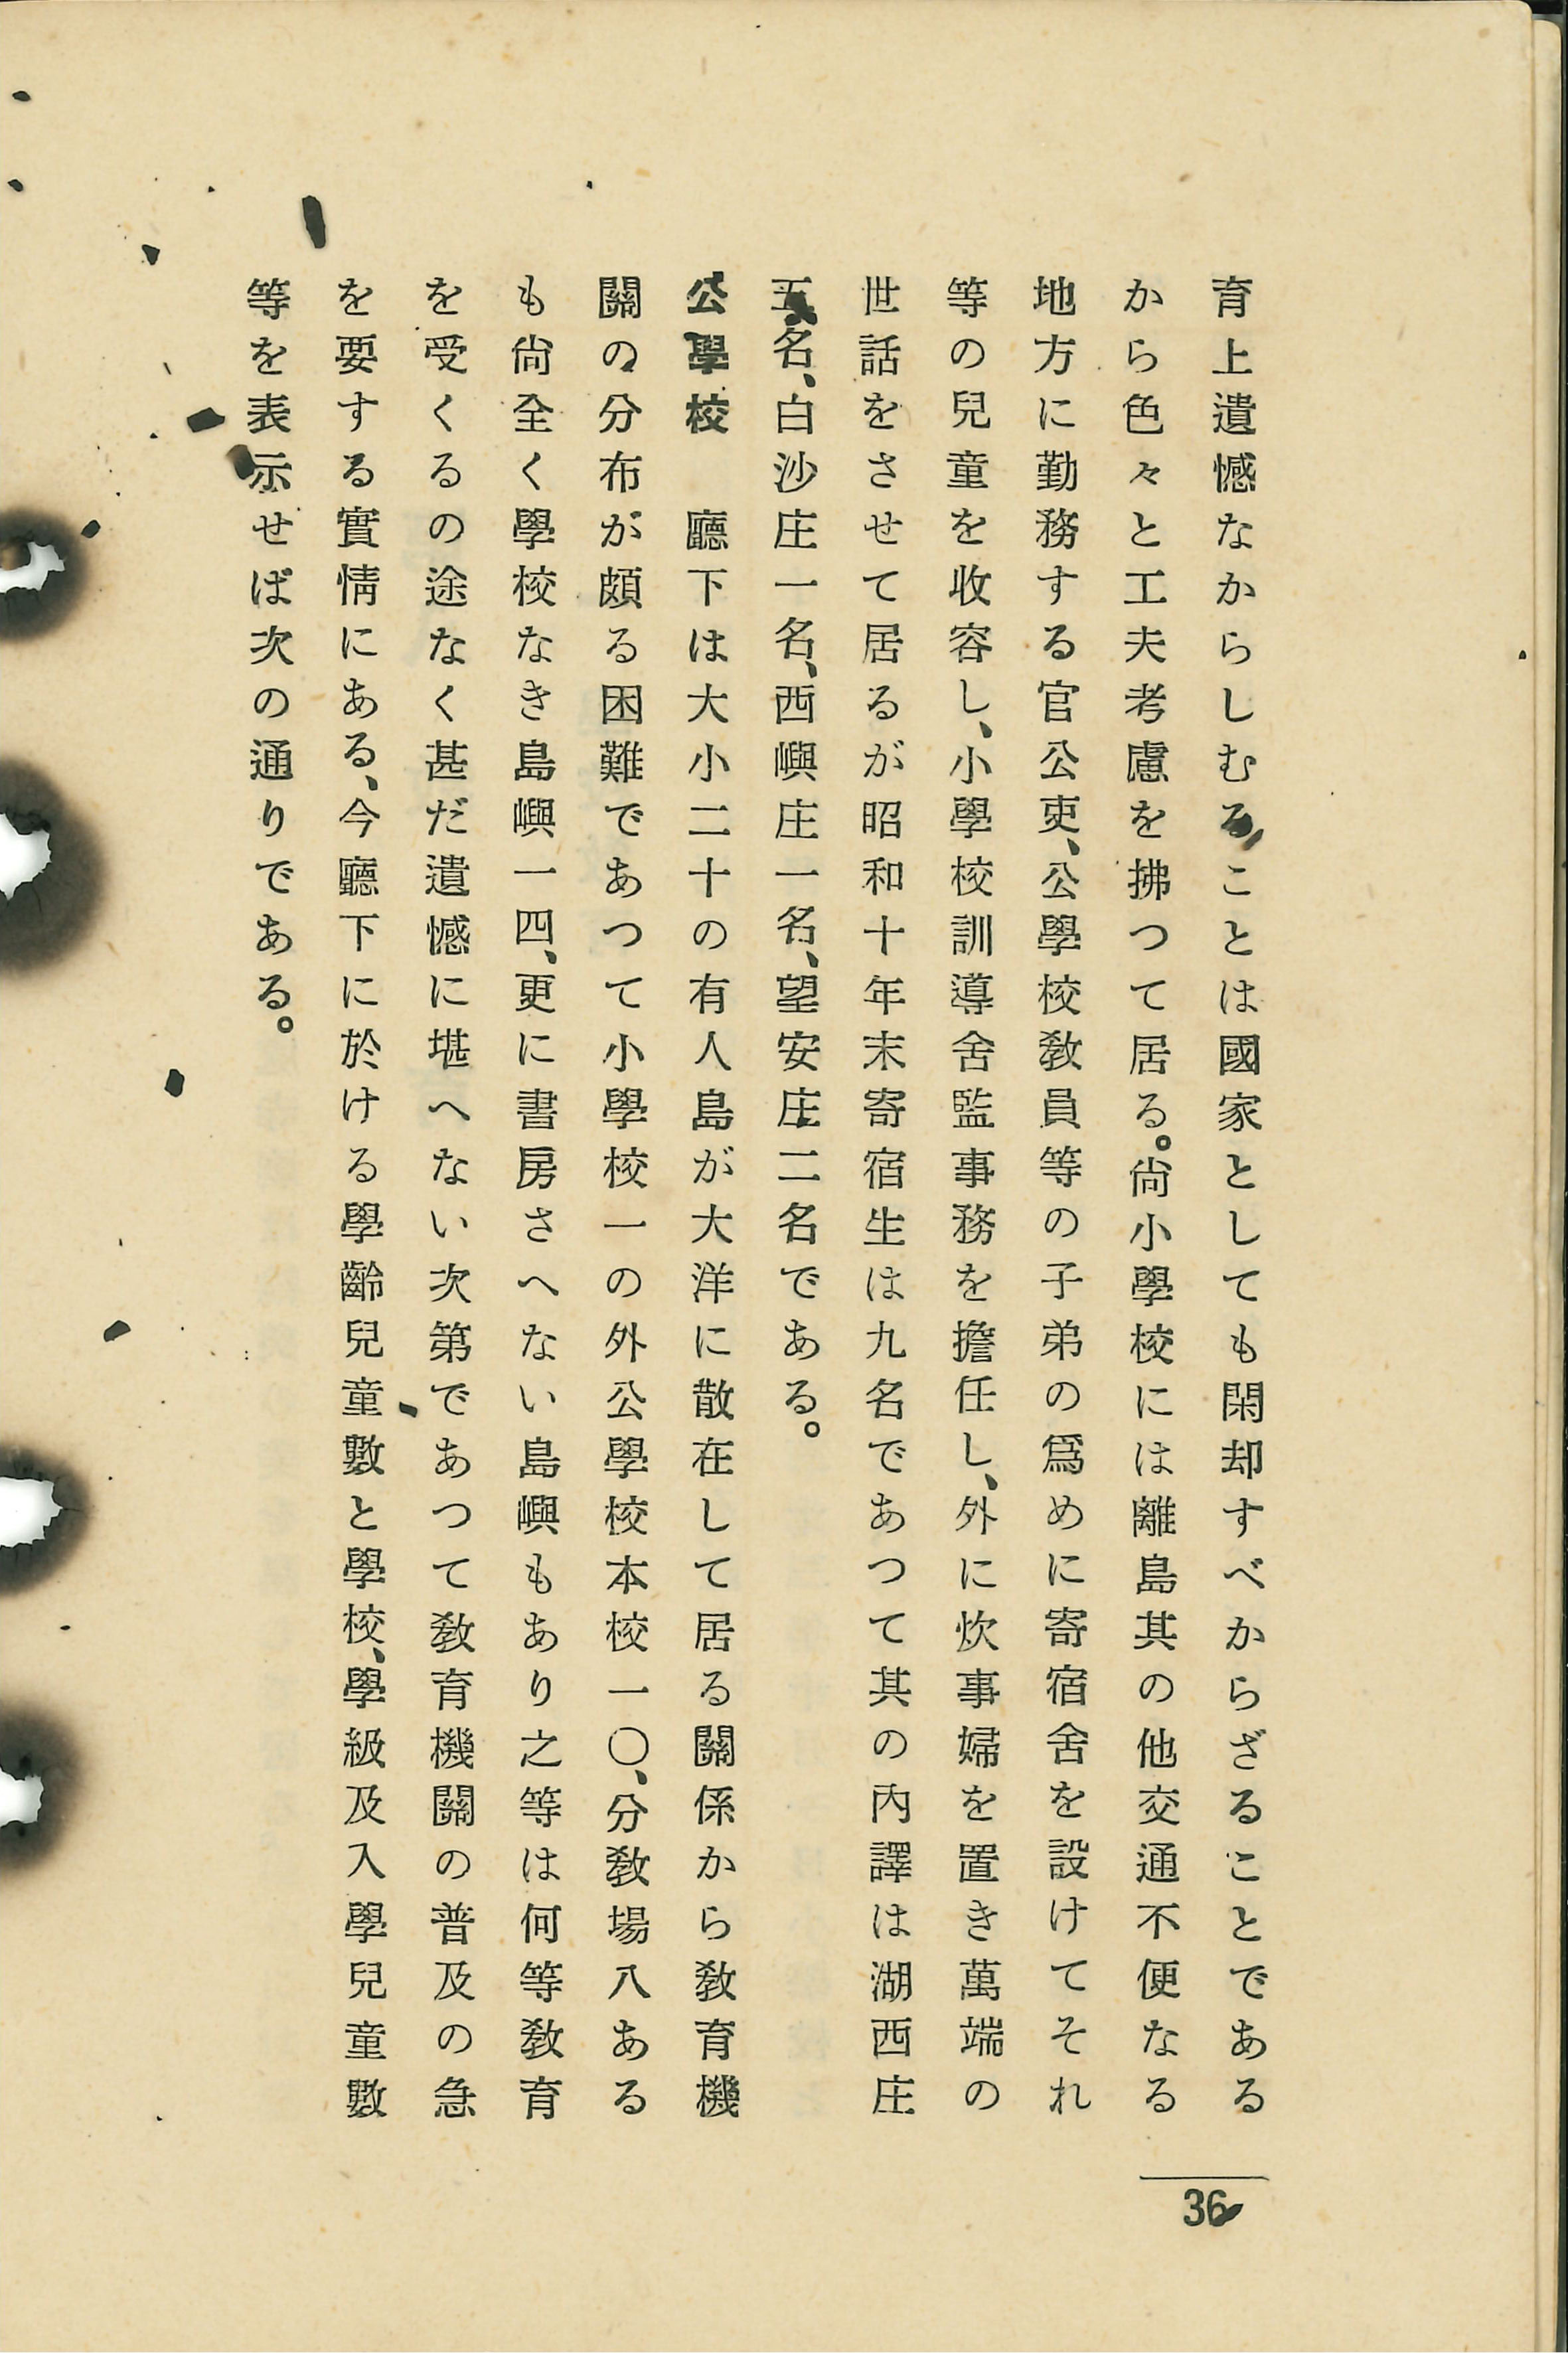 育上遺憾なからしむることは國家としても閑却すべからざることである
から色々と工夫考慮を拂つて居る。尙小學校には離島其の他交通不便なる
地方に勤務する官公吏、公學校敎員等の子弟の爲めに寄宿舍を設けてそれ
等の兒童を收容し、小學校訓導舍監事務を擔任し、外に炊事婦を置き萬端の
世話をさせて居るが昭和十年末寄宿生は九名であつて其の內譯は湖西庄
五名、白沙庄一名、西嶼庄一名、望安庄二名である。
公學校　廳下は大小二十の有人島が大洋に散在して居る關係から敎育機
關の分布が頗る困難であつて小學校一の外公學校本校一〇、分敎場八ある
も尙全く學校なき島嶼一四、更に書房さへない島嶼もあり之等は何等敎育
を受くるの途なく甚だ遺憾に堪へない次第であつて敎育機關の普及の急
を要する實情にある、今廳下に於ける學齡兒童數と學校、學級及入學兒童數
等を表示せば次の通りである。
36